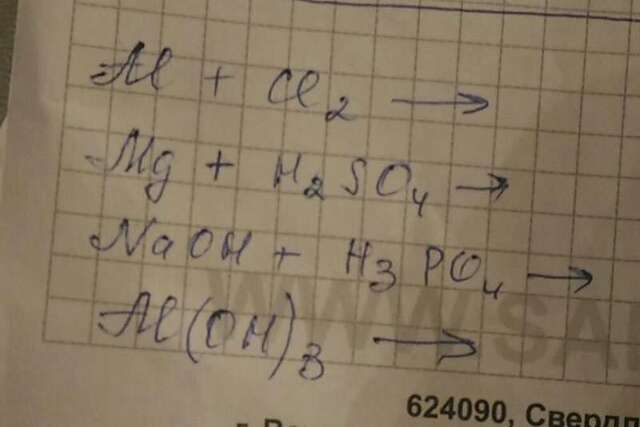 Al + Cl2 →
Mg + H2SO4 →
NaOH + H3PO4 →
Al(OH)3 →
WWW.SA
624090, Свердл